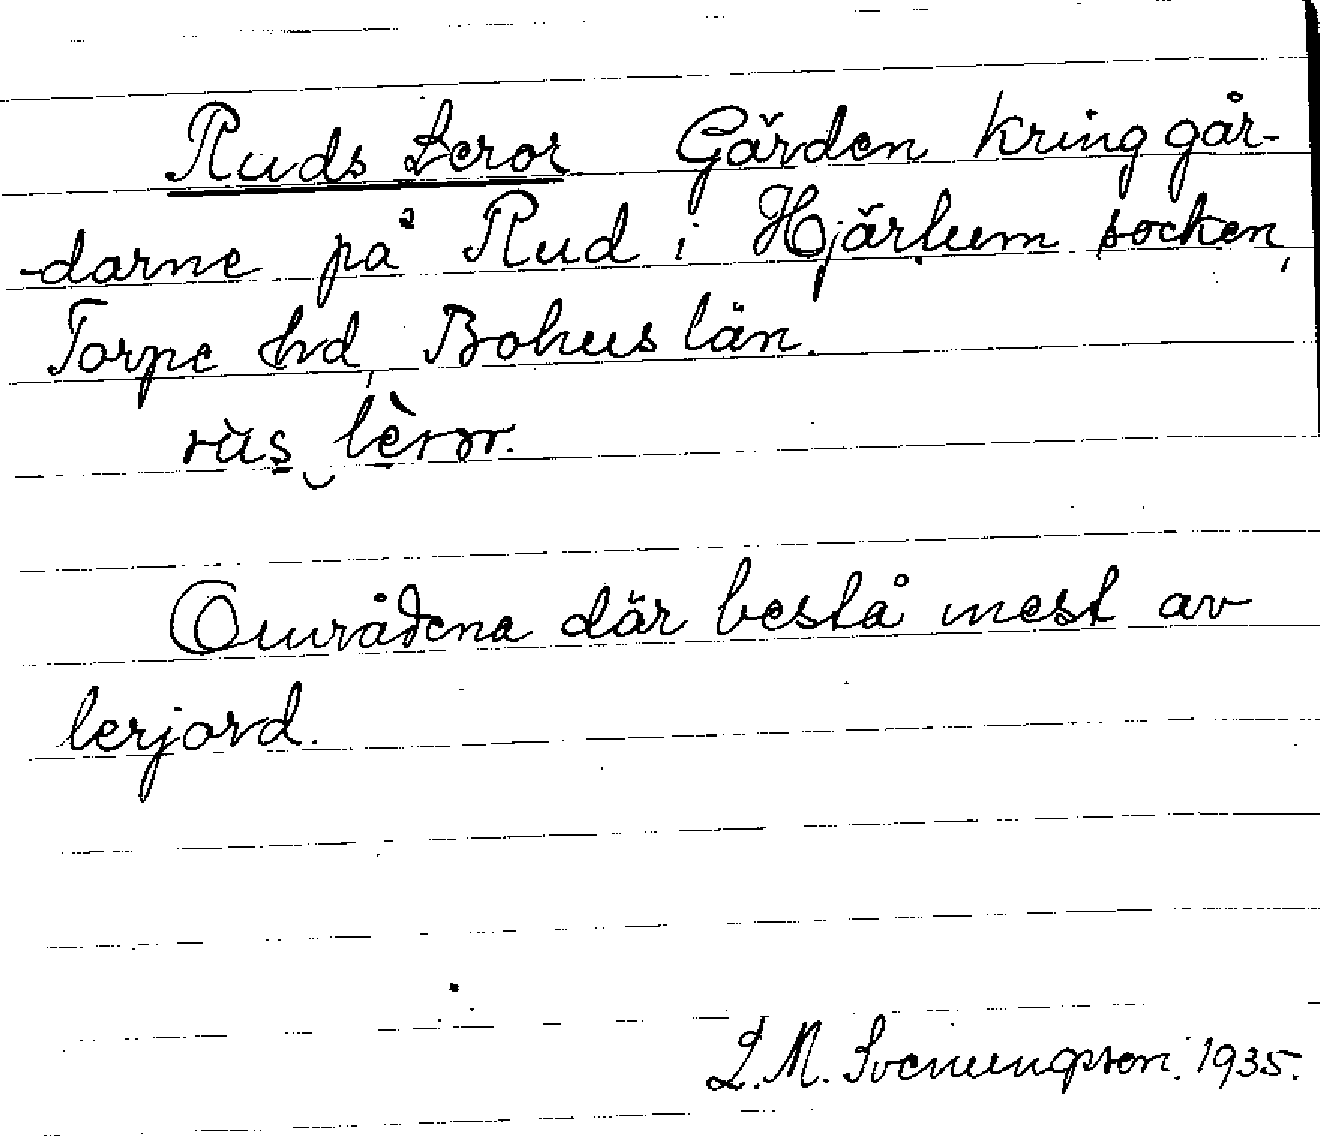 Ruds Leror Gärden kring går-
-darne på Rud i Hjärtum socken,
Torpe hd, Bohus län.
rùs lèror.
Områdena där bestå mest av
lerjord.
L. M. Svenungsson. 1935.